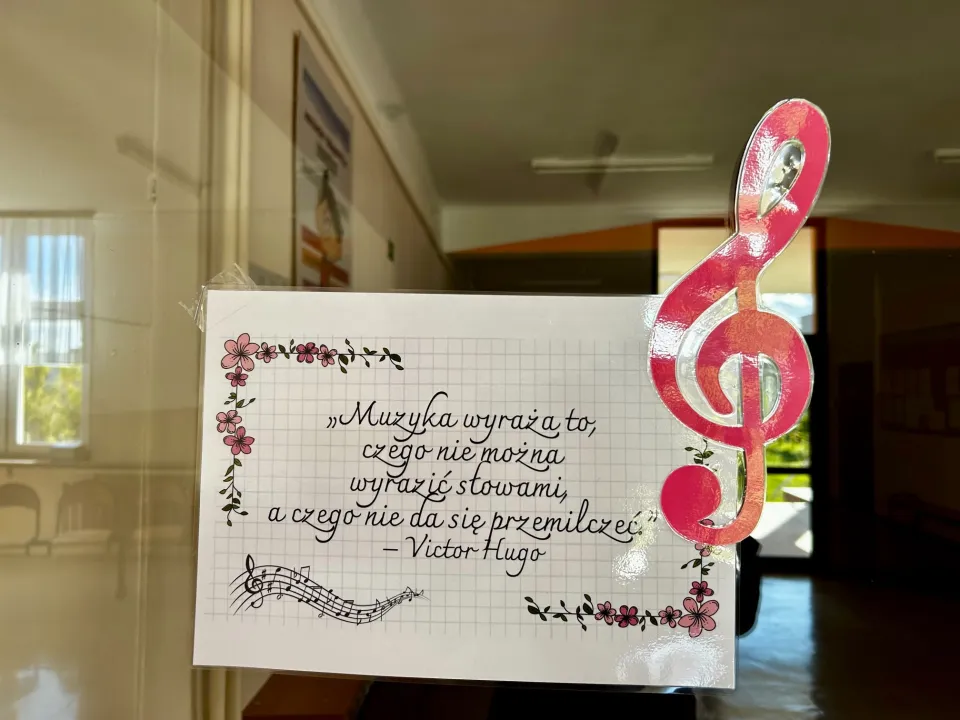 „Muzyka wyraża to,
czego nie można
wyrazić słowami,
a czego nie da się przemilczeć.”
– Victor Hugo